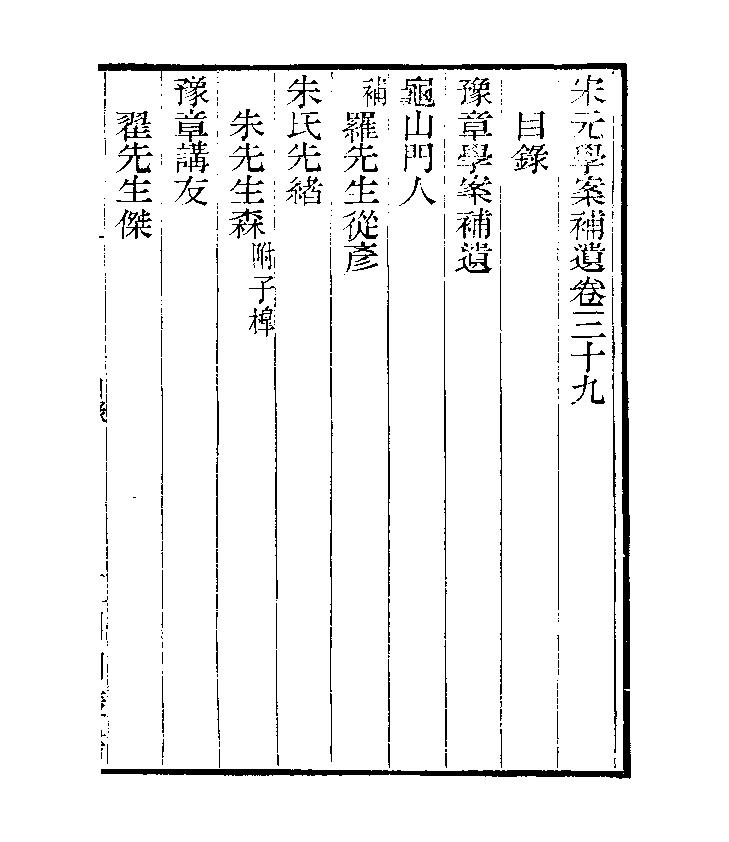 宋元學案補遺卷三十九
目錄
豫章學案補遺
龜山門人
補羅先生從彥
朱氏先緒
朱先生森附子槔
豫章講友
翟先生傑